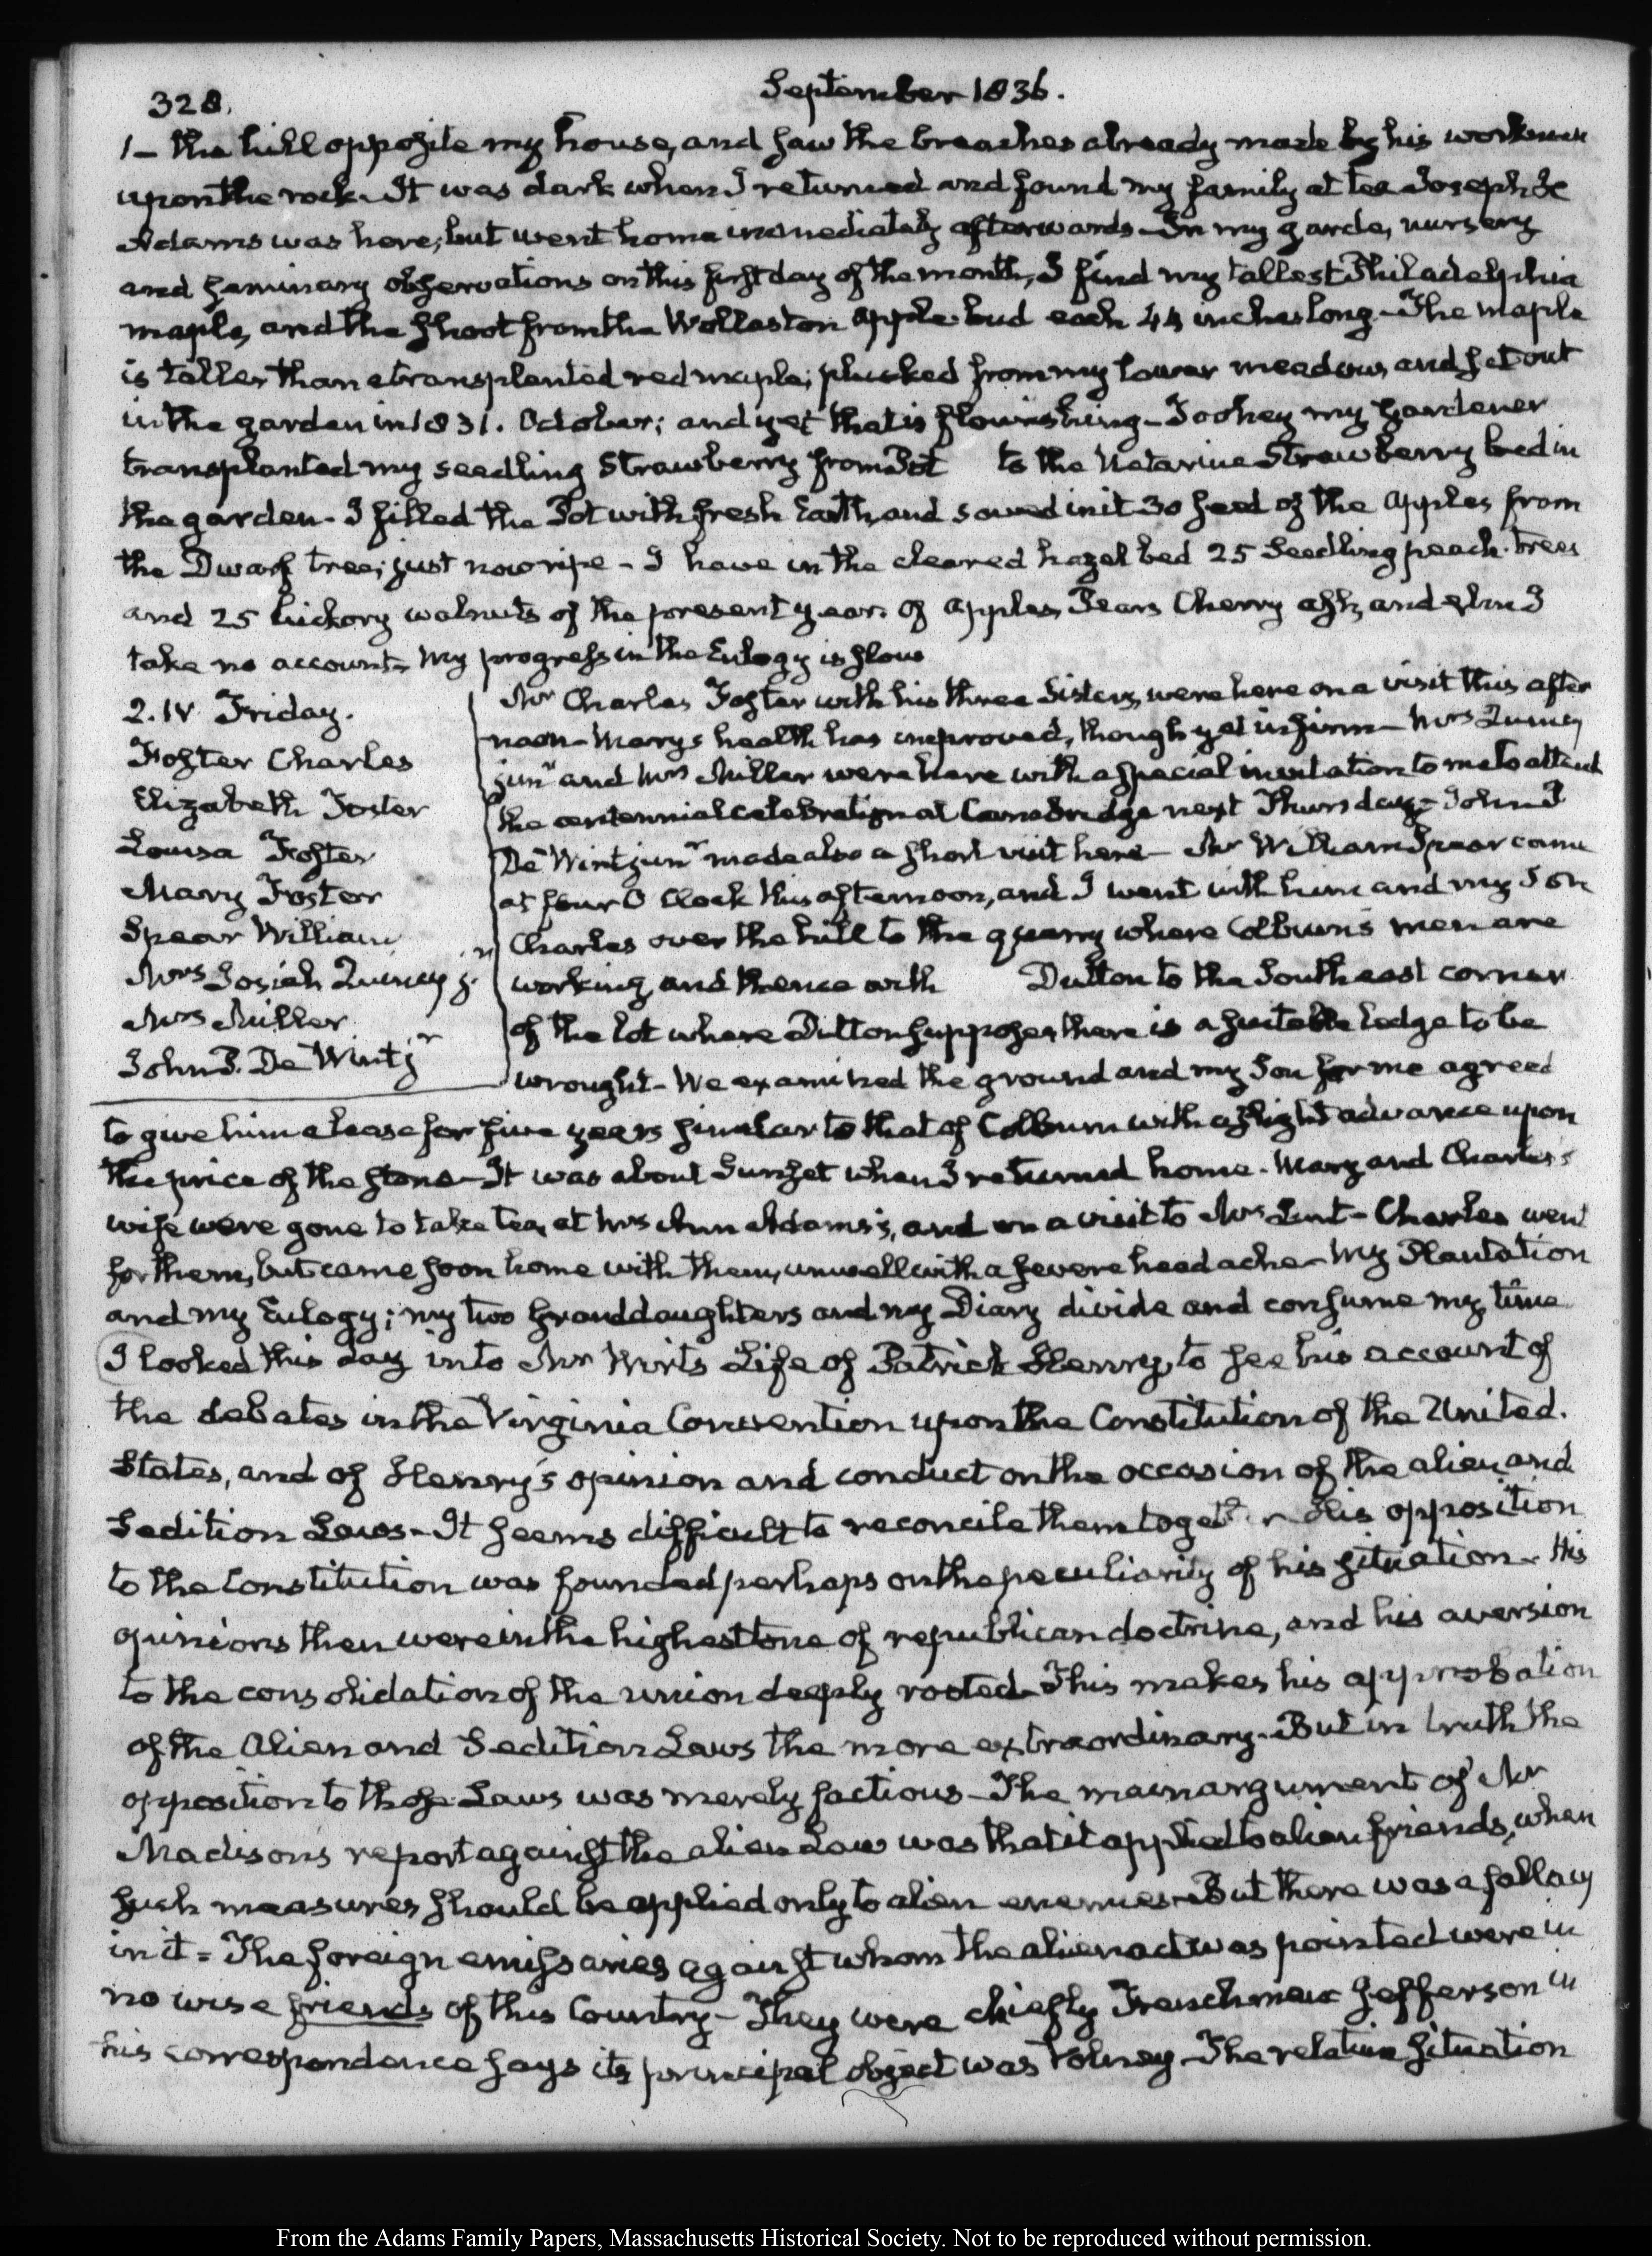 328.
September 1836.
1 — the hill opposite my house, and saw the breaches already made by his workmen
upon the rock. It was dark when I returned and found my family at tea Joseph H
Adams was here; but went home immediately afterwards — In my garden, nursery
and seminary observations on this first day of the month, I find my tallest Philadelphia
maple, and the shoot from the Wollaston apple bud each 44 inches long — The maple
is taller than a transplanted red maple; plucked from my lower meadow, and set out
in the garden in 1831. October; and yet that is flourishing — Toohey my gardener
transplanted my seedling Strawberry from Pot to the Nectarine Strawberry bed in
the garden — I filled the Pot with fresh Earth, and sowed in it 30 seed of the apples from
the Dwarf tree; just now ripe — I have in the cleared hazel bed 25 Seedling peach trees
and 25 hickory walnuts of the present year. Of apples, Pears, Cherry ash, and elm I
take no account. My progress in the Eulogy is slow
2. IV Friday.
Foster Charles
Elizabeth Foster
Louisa Foster
Mary Foster
Spear William
Mrs Josiah Quincy jr
Mrs Miller
John P. De Wint jr
Mr Charles Foster with his three Sisters, were here on a visit this after
noon — Mary's health has improved, though yet infirm — Mrs Quincy
junr and Mrs Miller were here with a special invitation to me to attend
the centennial celebration at Cambridge next Thursday — John P
De Wint junr made also a short visit here — Mr William Spear came
at four O Clock this afternoon, and I went with him and my Son
Charles over the hill to the quarry where Colburn's men are
working, and thence with Dutton to the South east corner
of the lot where Dutton supposes there is a suitable ledge to be
wrought — We examined the ground and my Son for me agreed
to give him a lease for five years similar to that of Colburn with a slight advance upon
the price of the stone — It was about Sunset when I returned home. Mary and Charles's
wife were gone to take tea, at Mrs Ann Adams's, and on a visit to Mrs Lunt — Charles went
for them, but came soon home with them, unwell with a severe head ache — My Plantation
and my Eulogy; my two Granddaughters and my Diary divide and consume my time
I looked this day into Mr Wirt's Life of Patrick Henry, to see his account of
the debates in the Virginia Convention upon the Constitution of the United.
States, and of Henry's opinion and conduct on the occasion of the alien and
Sedition Laws — It seems difficult to reconcile them together — His opposition
to the Constitution was founded perhaps on the peculiarity of his situation — His
opinions then were in the highest tone of republican doctrine, and his aversion
to the consolidation of the union deeply rooted — This makes his approbation
of the Alien and Sedition Laws the more extraordinary — But in truth the
opposition to those Laws was merely factious — The main argument of Mr
Madison's report against the alien Law was that it applied to alien friends, when
such measures should be applied only to alien enemies — But there was a fallacy
in it = The foreign emissaries against whom the alien act was pointed were in
no wise friends of this Country — They were chiefly Frenchmen Jefferson in
his correspondence says its principal object was Volney — The relative situation
From the Adams Family Papers, Massachusetts Historical Society. Not to be reproduced without permission.